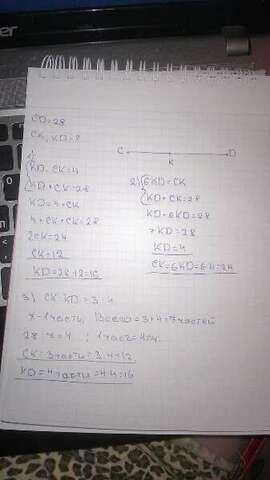 CD=28
CK, KD=?
C K D
1)
KD-CK=4
KD+CK=28
KD=4+CK
4+CK+CK=28
2CK=24
CK=12
KD=28-12=16
2) 6KD=CK
KD+CK=28
KD+6KD=28
7KD=28
KD=4
CK=6KD=6·4=24
3) CK:KD=3:4
x-1 часть, Всего=3+4=7 частей
28:x=4 ; 1 часть=4
CK=3 части=3·4=12
KD=4 части=4·4=16